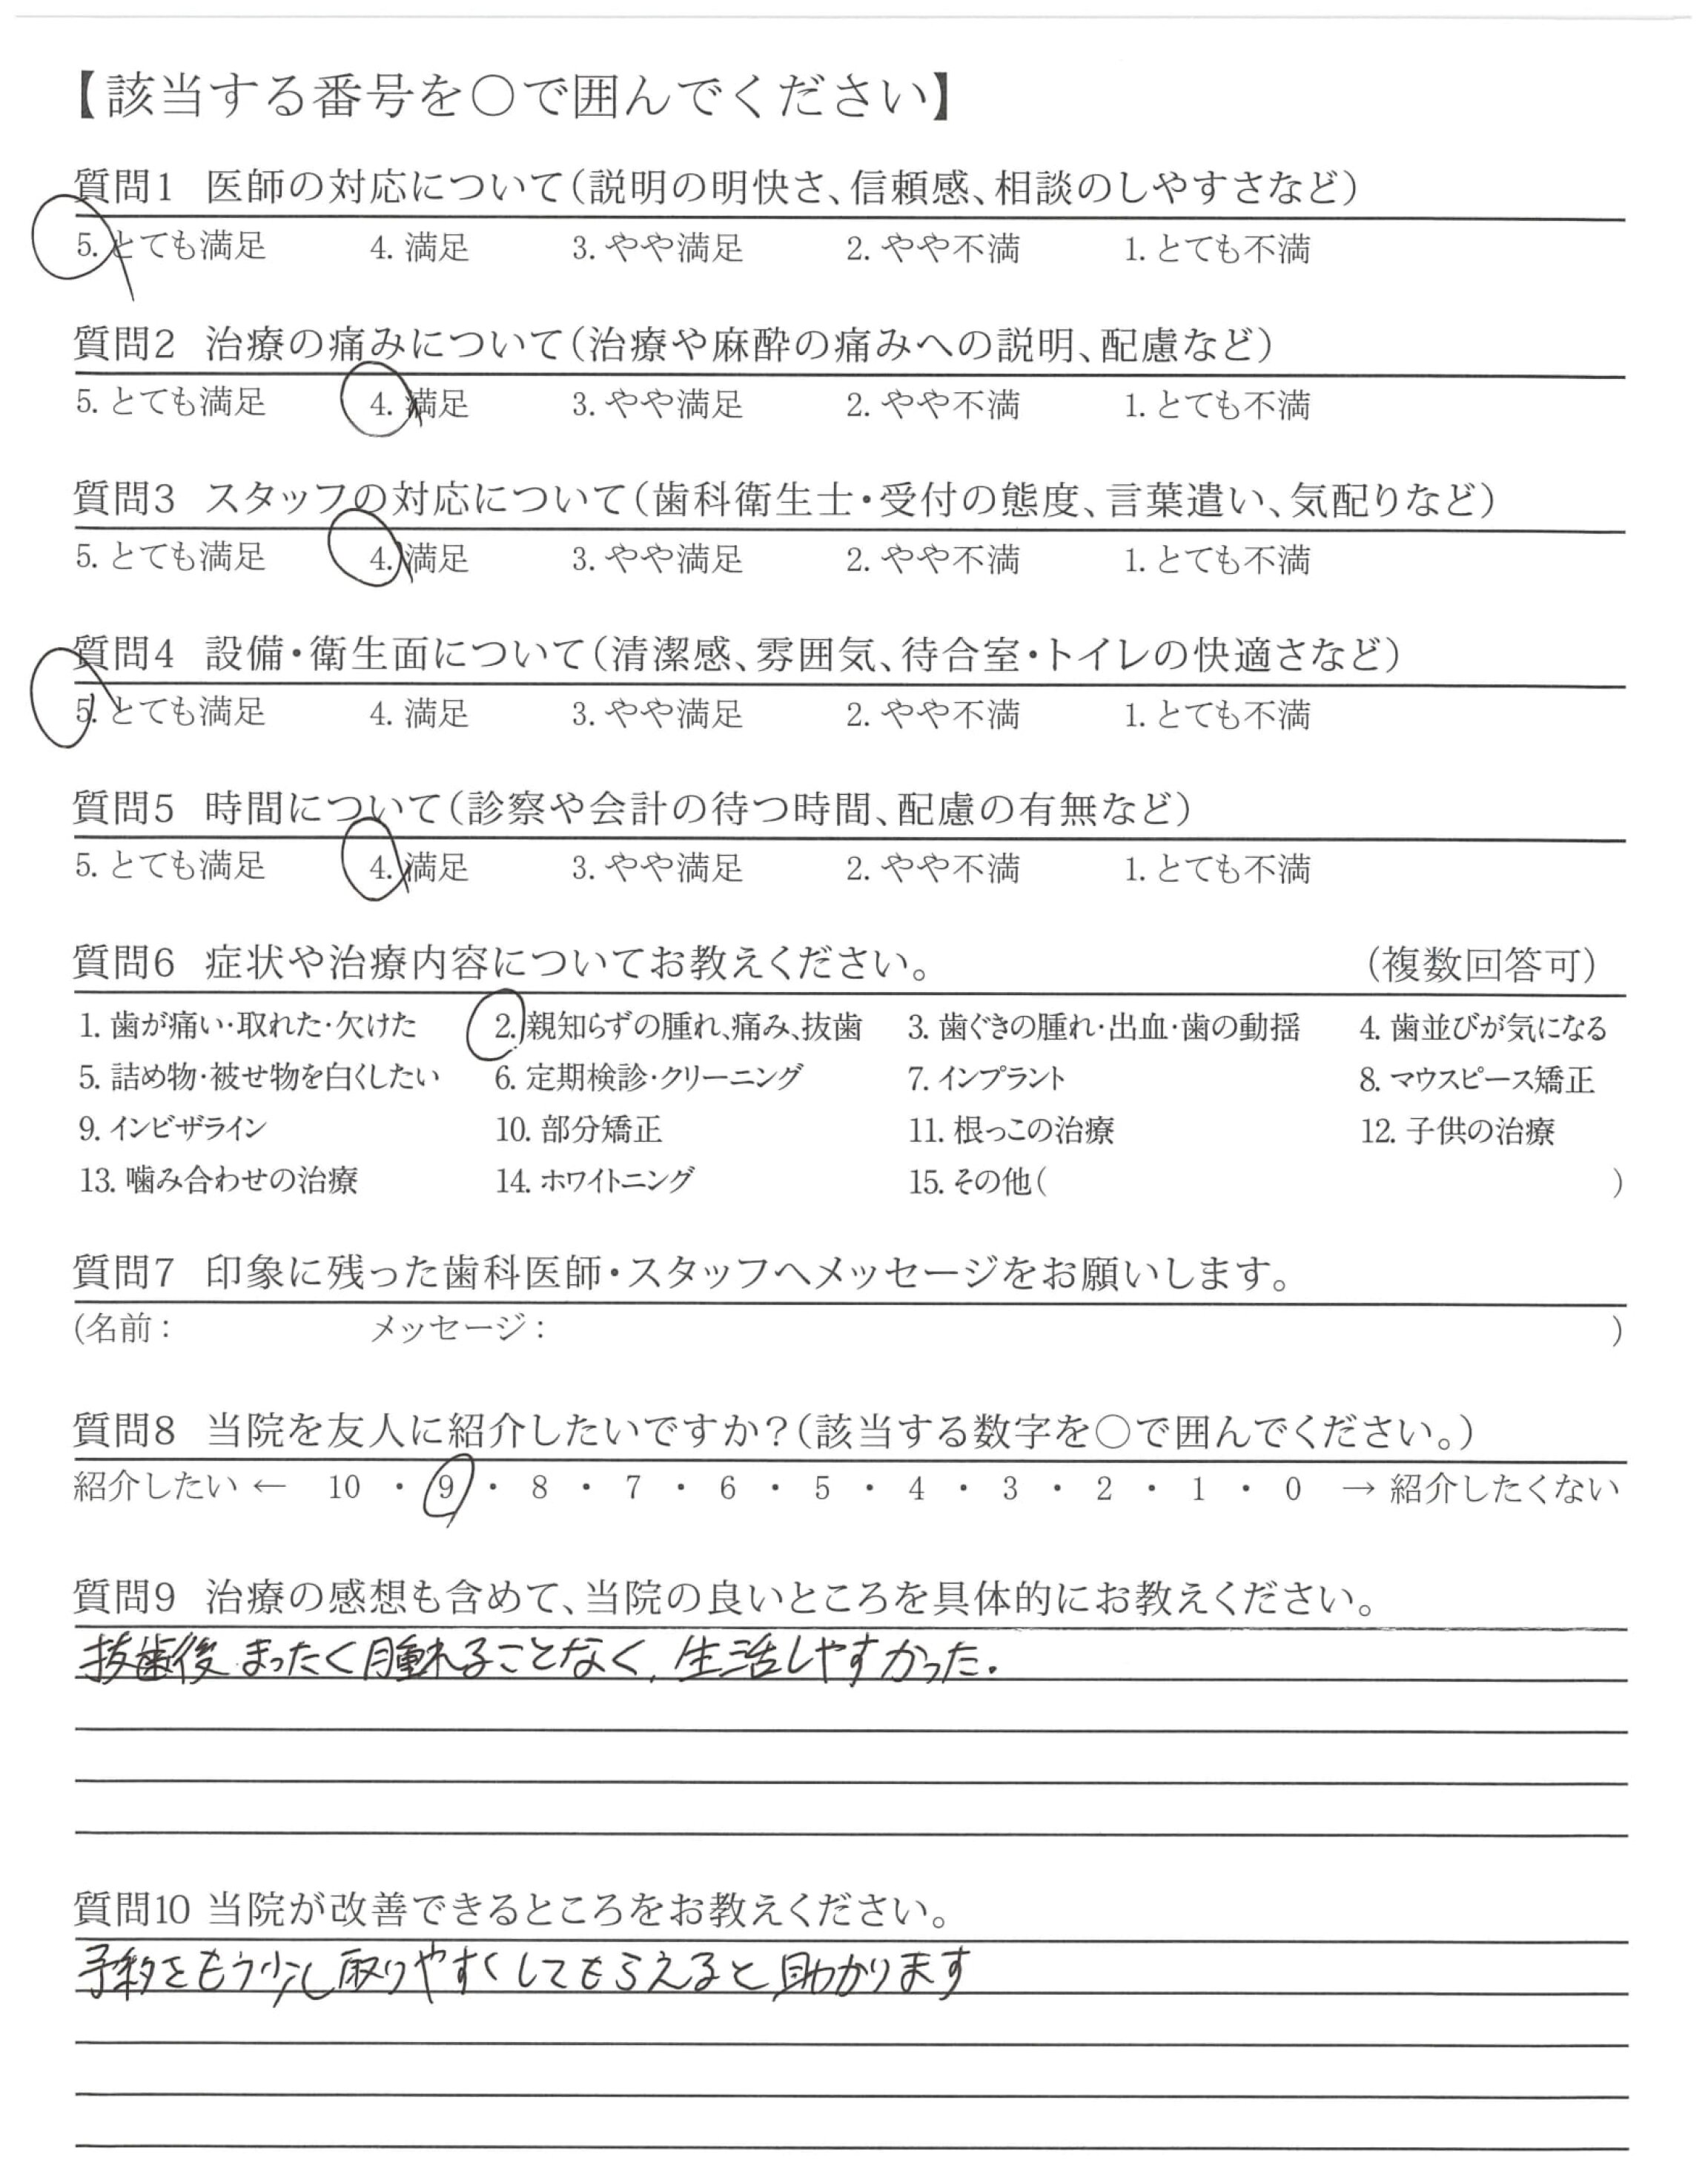 【該当する番号を○で囲んでください】
質問1 医師の対応について(説明の明快さ、信頼感、相談のしやすさなど)
5. とても満足 4. 満足 3. やや満足 2. やや不満 1. とても不満
質問2 治療の痛みについて(治療や麻酔の痛みへの説明、配慮など)
5. とても満足 4. 満足 3. やや満足 2. やや不満 1. とても不満
質問3 スタッフの対応について(歯科衛生士・受付の態度、言葉遣い、気配りなど)
5. とても満足 4. 満足 3. やや満足 2. やや不満 1. とても不満
質問4 設備・衛生面について(清潔感、雰囲気、待合室・トイレの快適さなど)
5. とても満足 4. 満足 3. やや満足 2. やや不満 1. とても不満
質問5 時間について(診察や会計の待つ時間、配慮の有無など)
5. とても満足 4. 満足 3. やや満足 2. やや不満 1. とても不満
質問6 症状や治療内容についてお教えください。 (複数回答可)
1. 歯が痛い・取れた・欠けた 2. 親知らずの腫れ、痛み、抜歯 3. 歯ぐきの腫れ・出血・歯の動揺 4. 歯並びが気になる
5. 詰め物・被せ物を白くしたい 6. 定期検診・クリーニング 7. インプラント 8. マウスピース矯正
9. インビザライン 10. 部分矯正 11. 根っこの治療 12. 子供の治療
13. 噛み合わせの治療 14. ホワイトニング 15. その他( )
質問7 印象に残った歯科医師・スタッフへメッセージをお願いします。
(名前: メッセージ: )
質問8 当院を友人に紹介したいですか?(該当する数字を○で囲んでください。)
紹介したい ← 10 ・ 9 ・ 8 ・ 7 ・ 6 ・ 5 ・ 4 ・ 3 ・ 2 ・ 1 ・ 0 → 紹介したくない
質問9 治療の感想も含めて、当院の良いところを具体的にお教えください。
抜歯後まったく腫れることなく、生活しやすかった。
質問10 当院が改善できるところをお教えください。
予約をもう少し取りやすくしてもらえると助かります